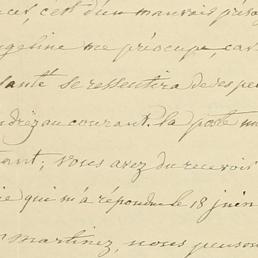 c'est d'un mauvais présa
ngeline me préoccupe, car
santé se ressentira de ses pe
ndrez au courant. la poste m
ant; vous avez du recevoir
ie qui m'a répondu le 18 juin
n martinez, nous pensons